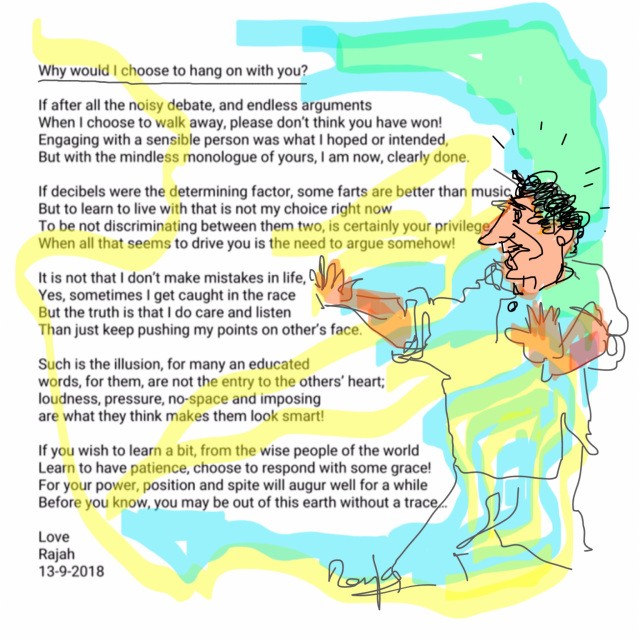 Why would I choose to hang on with you?
If after all the noisy debate, and endless arguments
When I choose to walk away, please don't think you have won!
Engaging with a sensible person was what I hoped or intended,
But with the mindless monologue of yours, I am now, clearly done.
If decibels were the determining factor, some farts are better than music
But to learn to live with that is not my choice right now
To be not discriminating between them two, is certainly your privilege
When all that seems to drive you is the need to argue somehow!
It is not that I don't make mistakes in life,
Yes, sometimes I get caught in the race
But the truth is that I do care and listen
Than just keep pushing my points on other's face.
Such is the illusion, for many an educated
words, for them, are not the entry to the others' heart;
loudness, pressure, no-space and imposing
are what they think makes them look smart!
If you wish to learn a bit, from the wise people of the world
Learn to have patience, choose to respond with some grace!
For your power, position and spite will augur well for a while
Before you know, you may be out of this earth without a trace...
Love
Rajah
13-9-2018